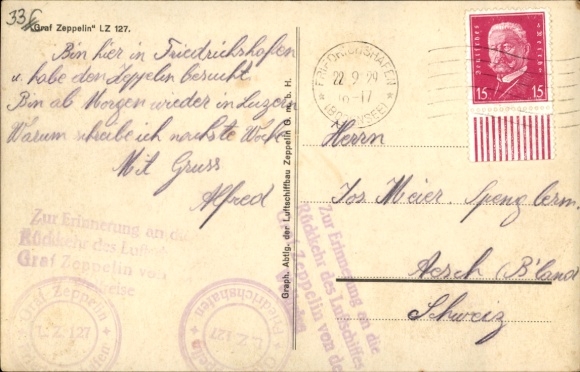 335
"Graf Zeppelin" LZ 127.
Bin hier in Friedrichshafen
u. habe den Zeppelin besucht
Bin ab Morgen wieder in Luzern
Warum schreibe ich nächste Woche
Mit Gruss
Alfred
Zur Erinnerung an die
Rückkehr des Luftsch
Graf Zeppelin von
reise
Zeppelin
L.Z. 127
Graph. Abtlg. der Luftschiffbau Zeppelin G. m. b. H.
FRIEDRICHSHAFEN
22.9.29
16-17
(BODENSEE)
Deutsches Reich
15 15
Herrn
Jos. Meier. Spenglerm.
Aesch (B'land
Schweiz
Zur Erinnerung an die
Rückkehr des Luftschiffes
Graf Zeppelin von der
Friedrichshafen
L.Z. 127